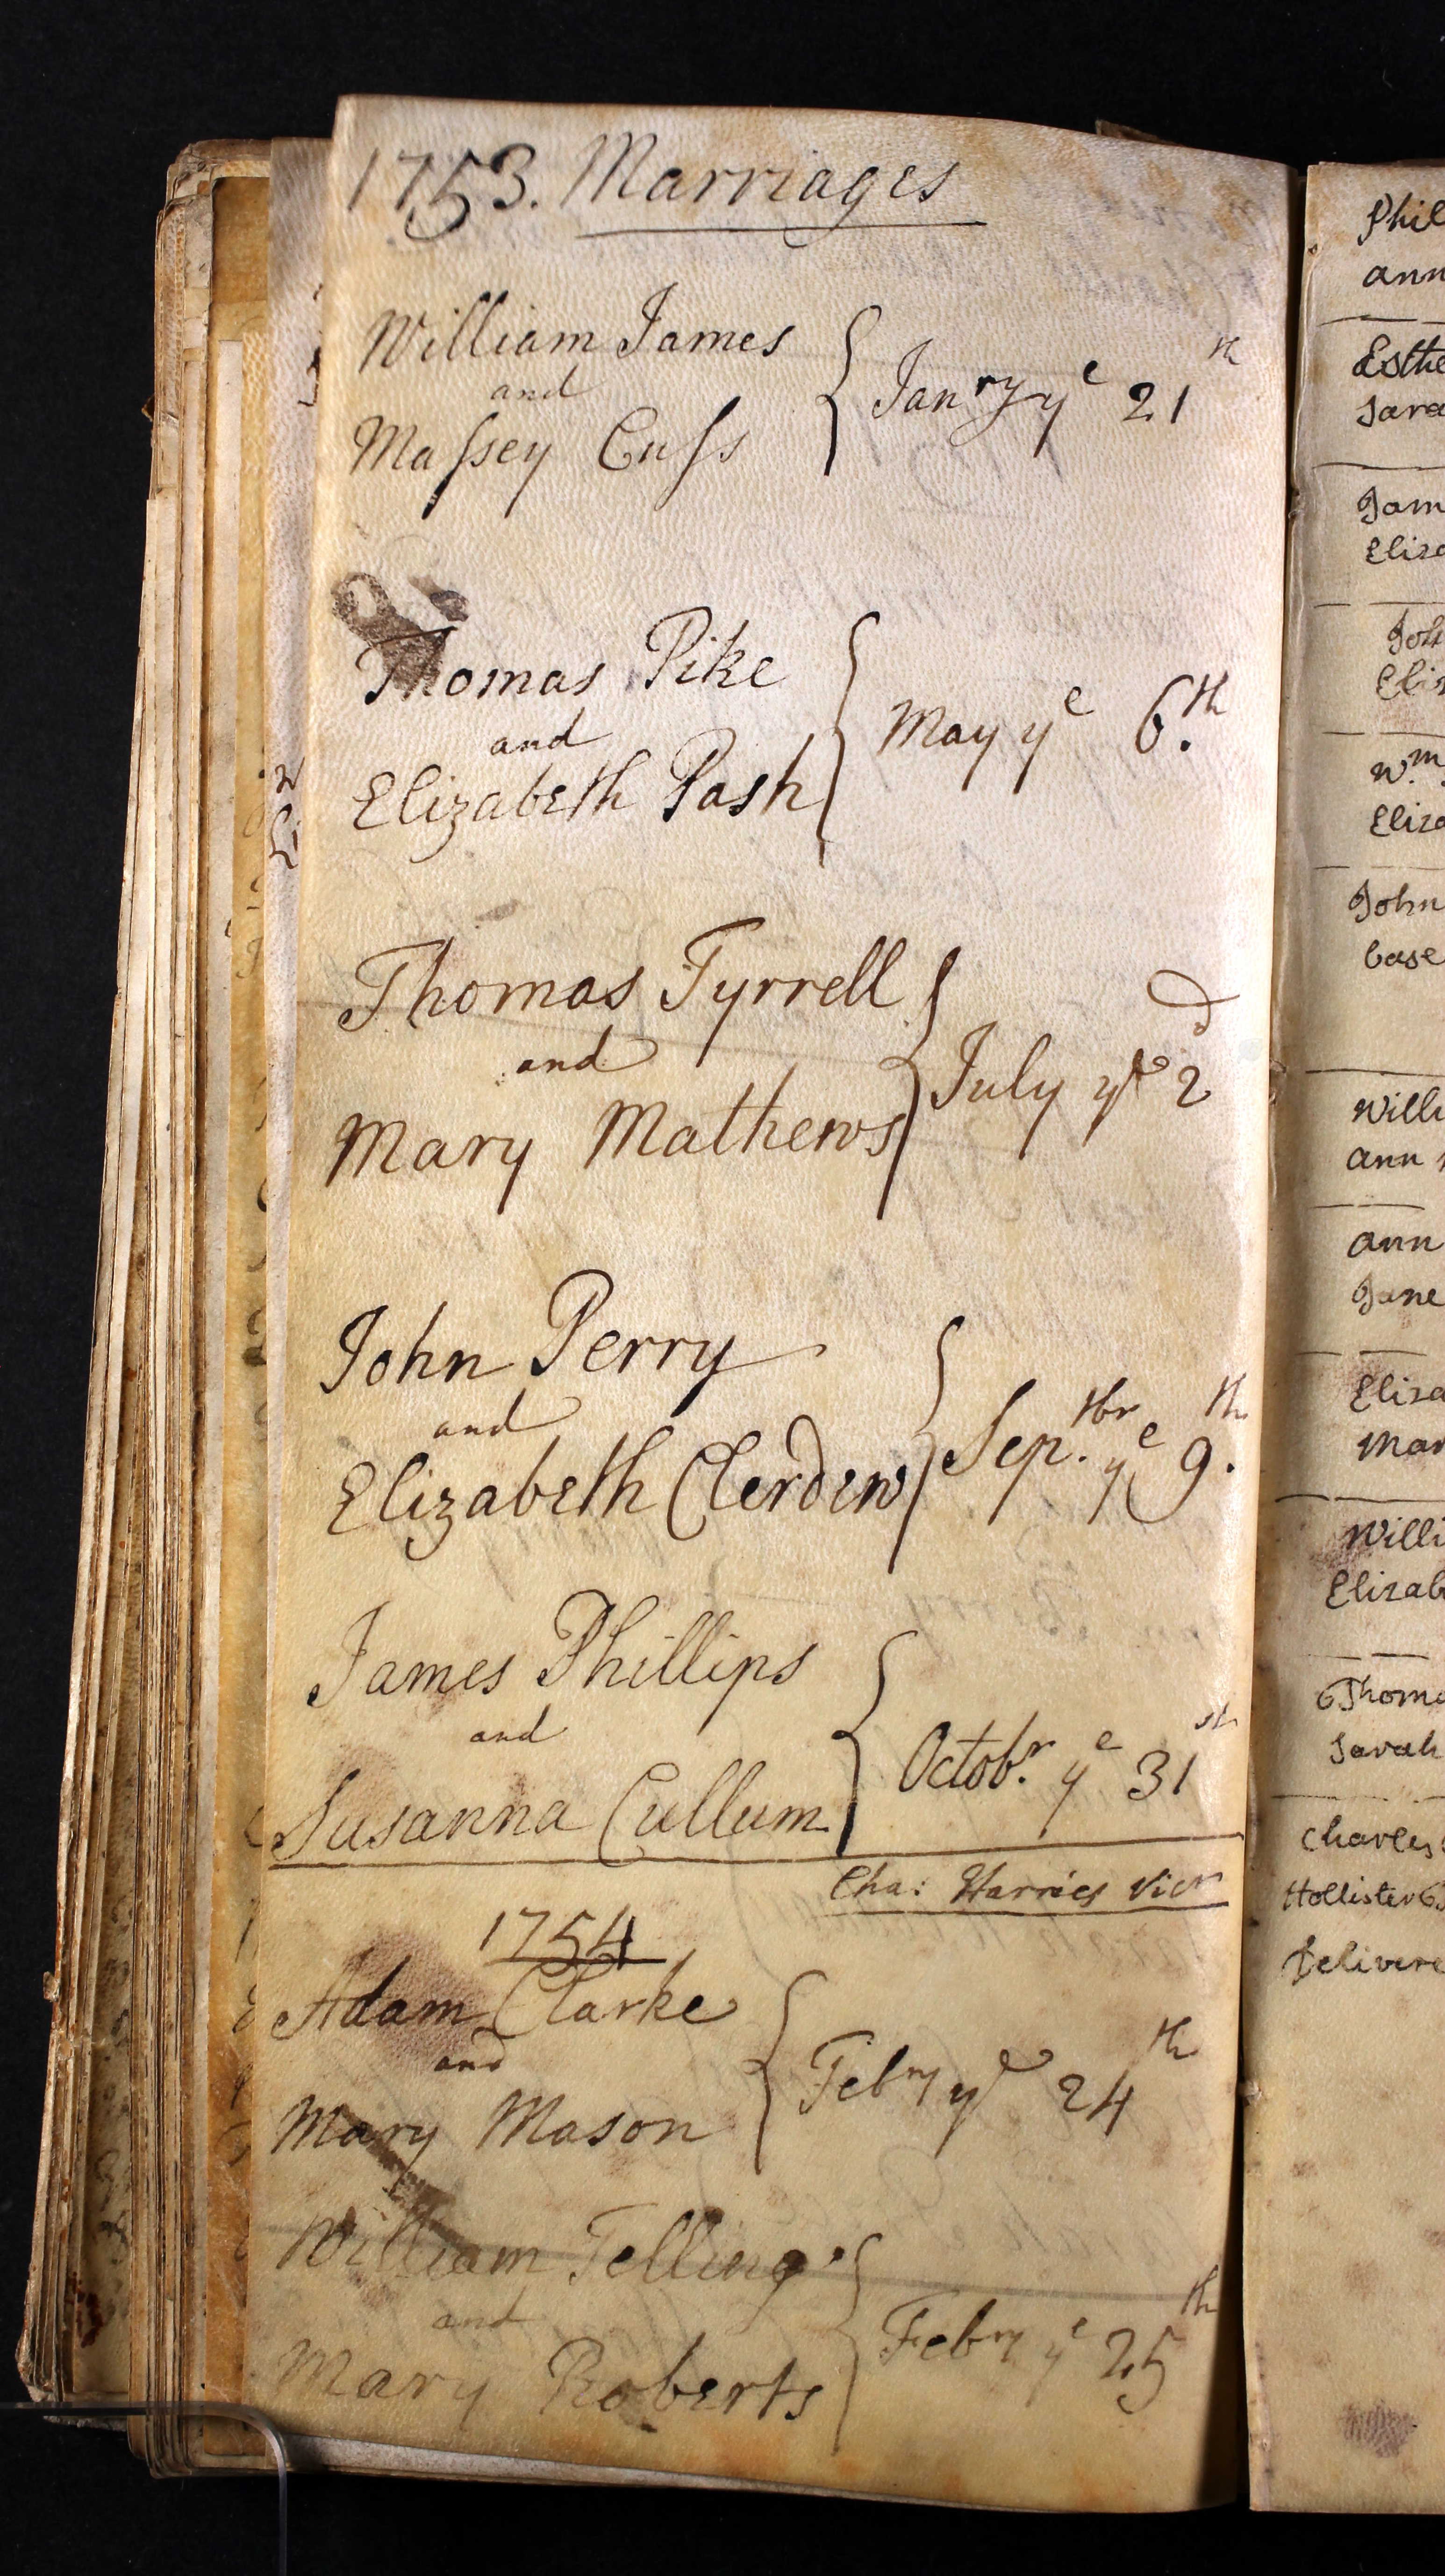 1753. Marriages
William James
and
Massey Cuss
Janry ye 21st
Thomas Pike
and
Elizabeth Pash
May ye 6.th
Thomas Tyrrell
and
Mary Mathews
July ye 2d
John Perry
and
Elizabeth Clerdew
Sep.tbr ye 9.th
James Phillips
and
Susanna Cullum
Octobr. ye 31st
Cha: Harries Vicr
1754
Adam Clarke
and
Mary Mason
Febry ye 24th
William Telling
and
Mary Roberts
Febry ye 25th
Phil
ann
Esthe
Sara
Jam
Eliza
Joh
Eliz
Wm.
Eliza
John
base
Willi
ann
ann
Jane
Eliza
Mar
Willi
Elizab
Thoma
Sarah
Charles
Hollister
Delivere